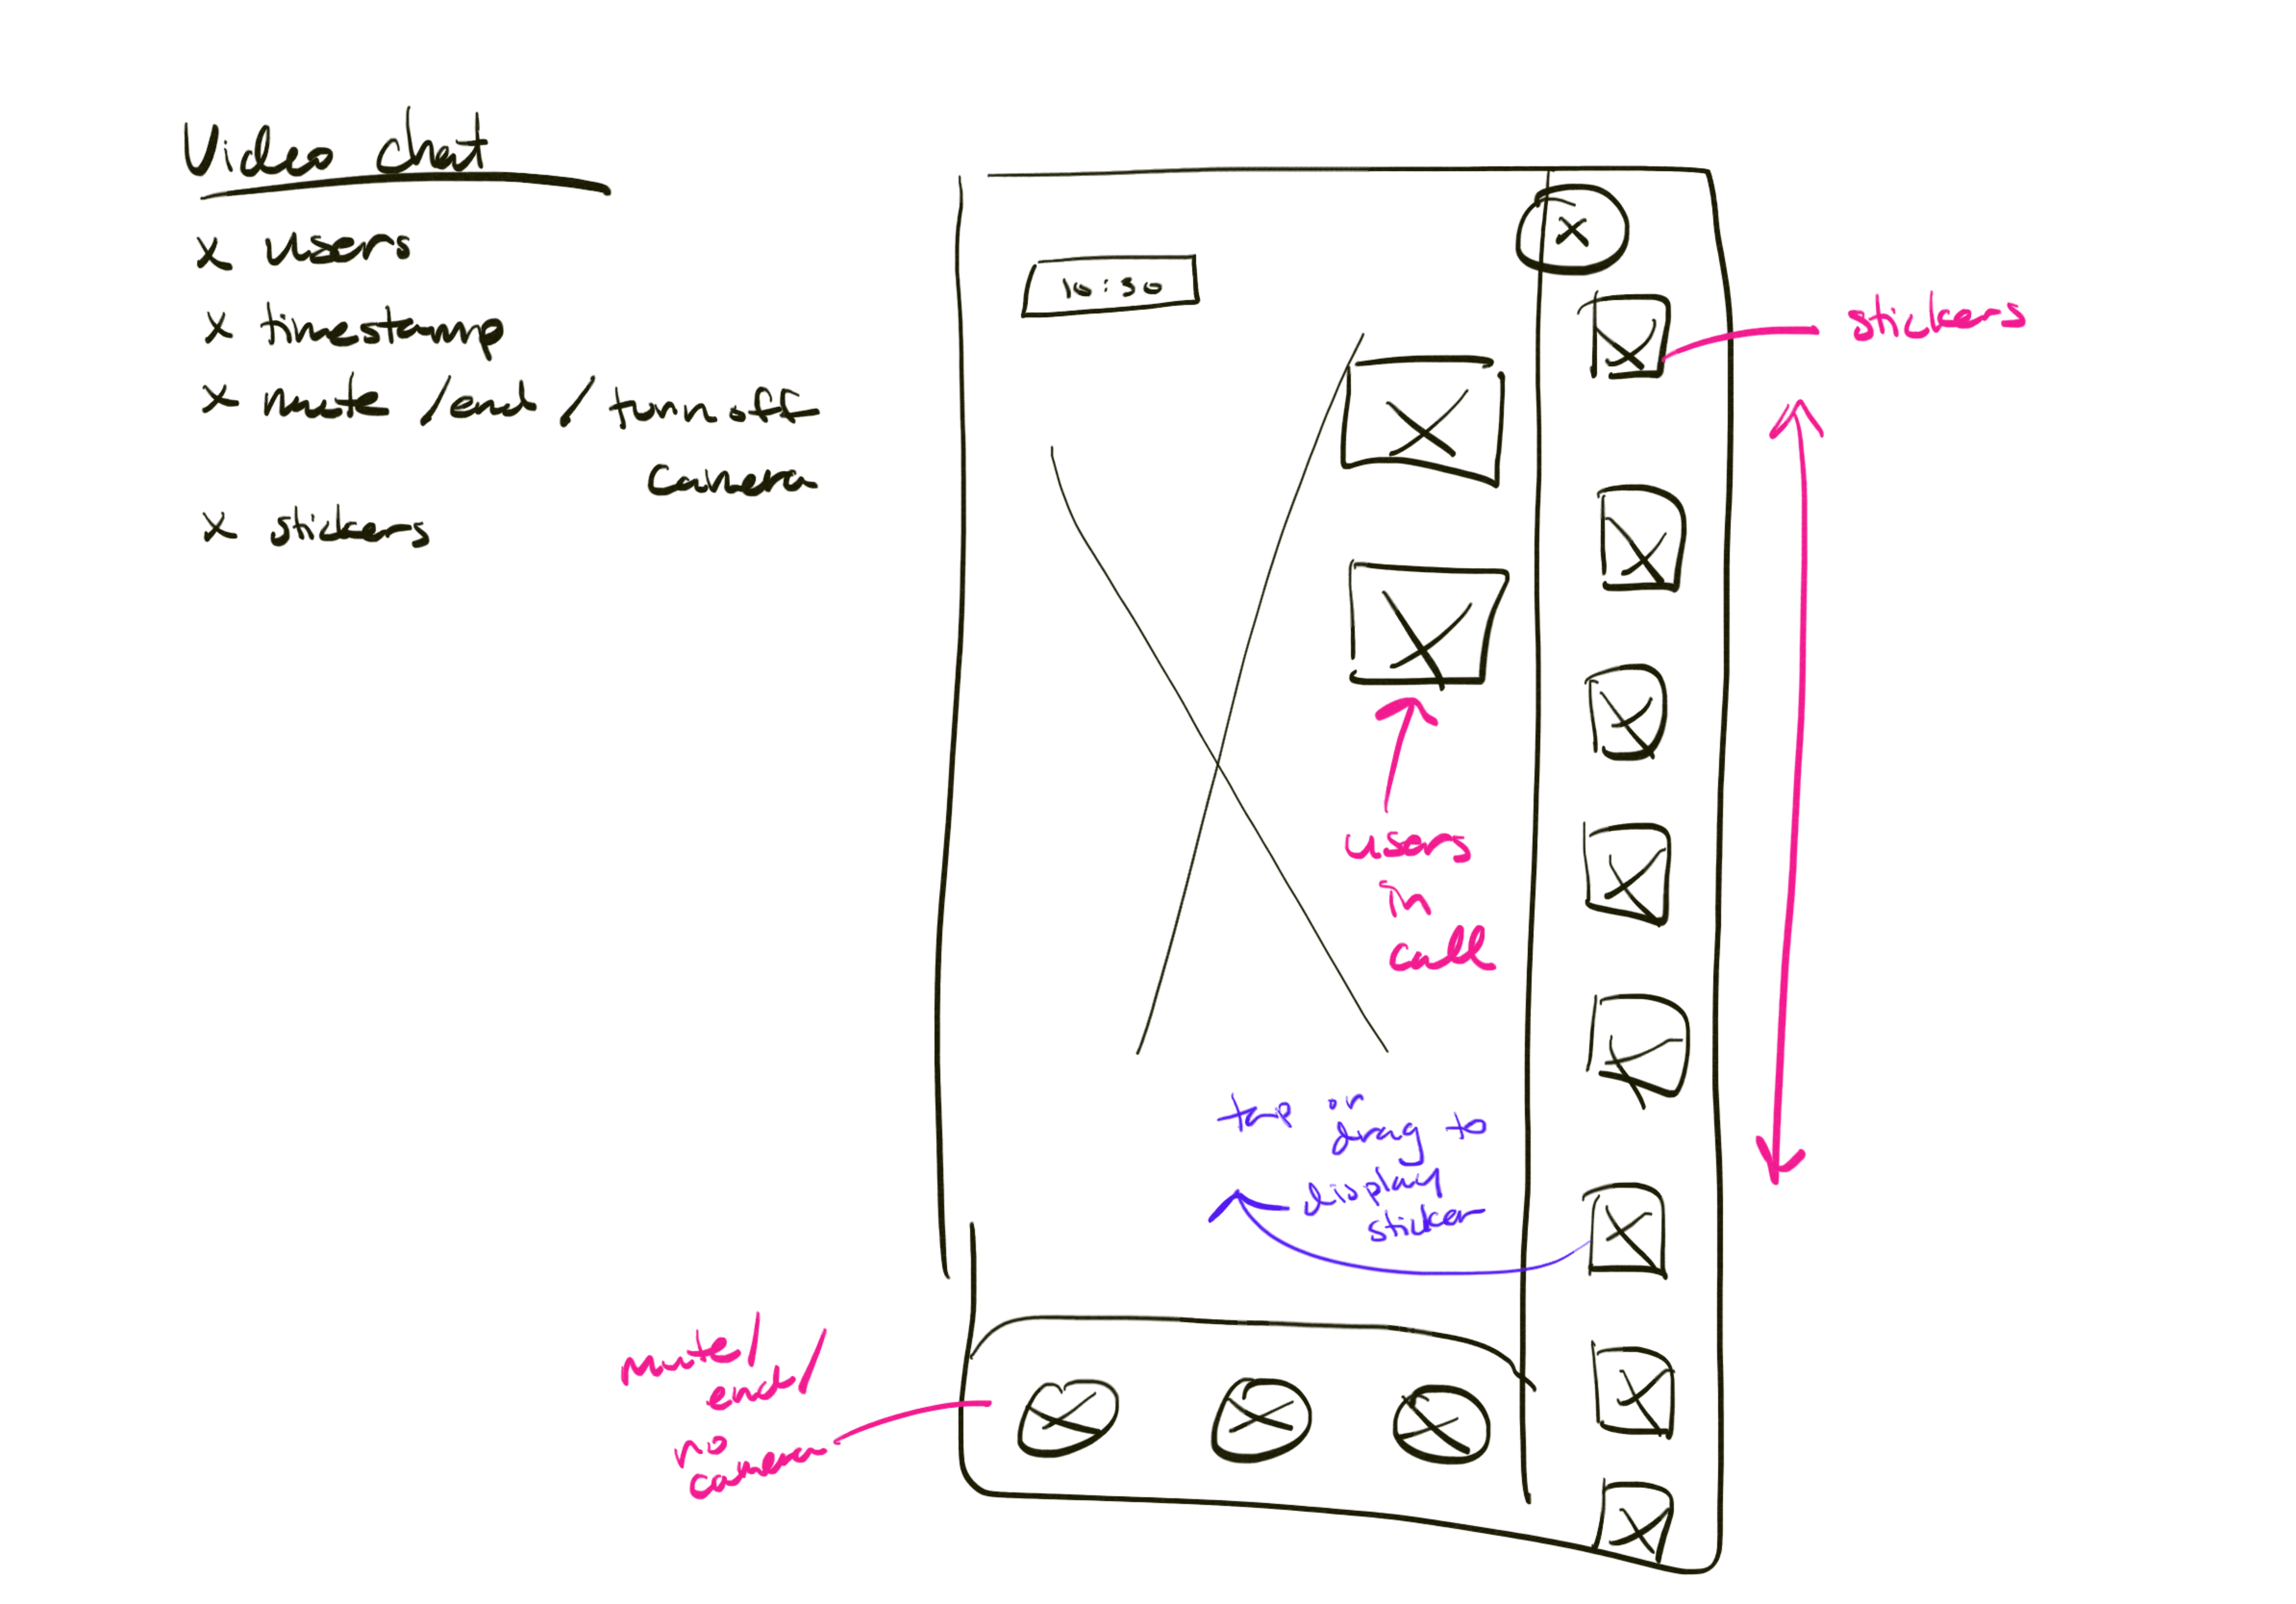 Video Chat
x users
x timestamp
x mute / end / turn off
camera
x stickers
10:30
x
stickers
users
in
call
tap or
drag to
display
sticker
mute/
end/
no
camera